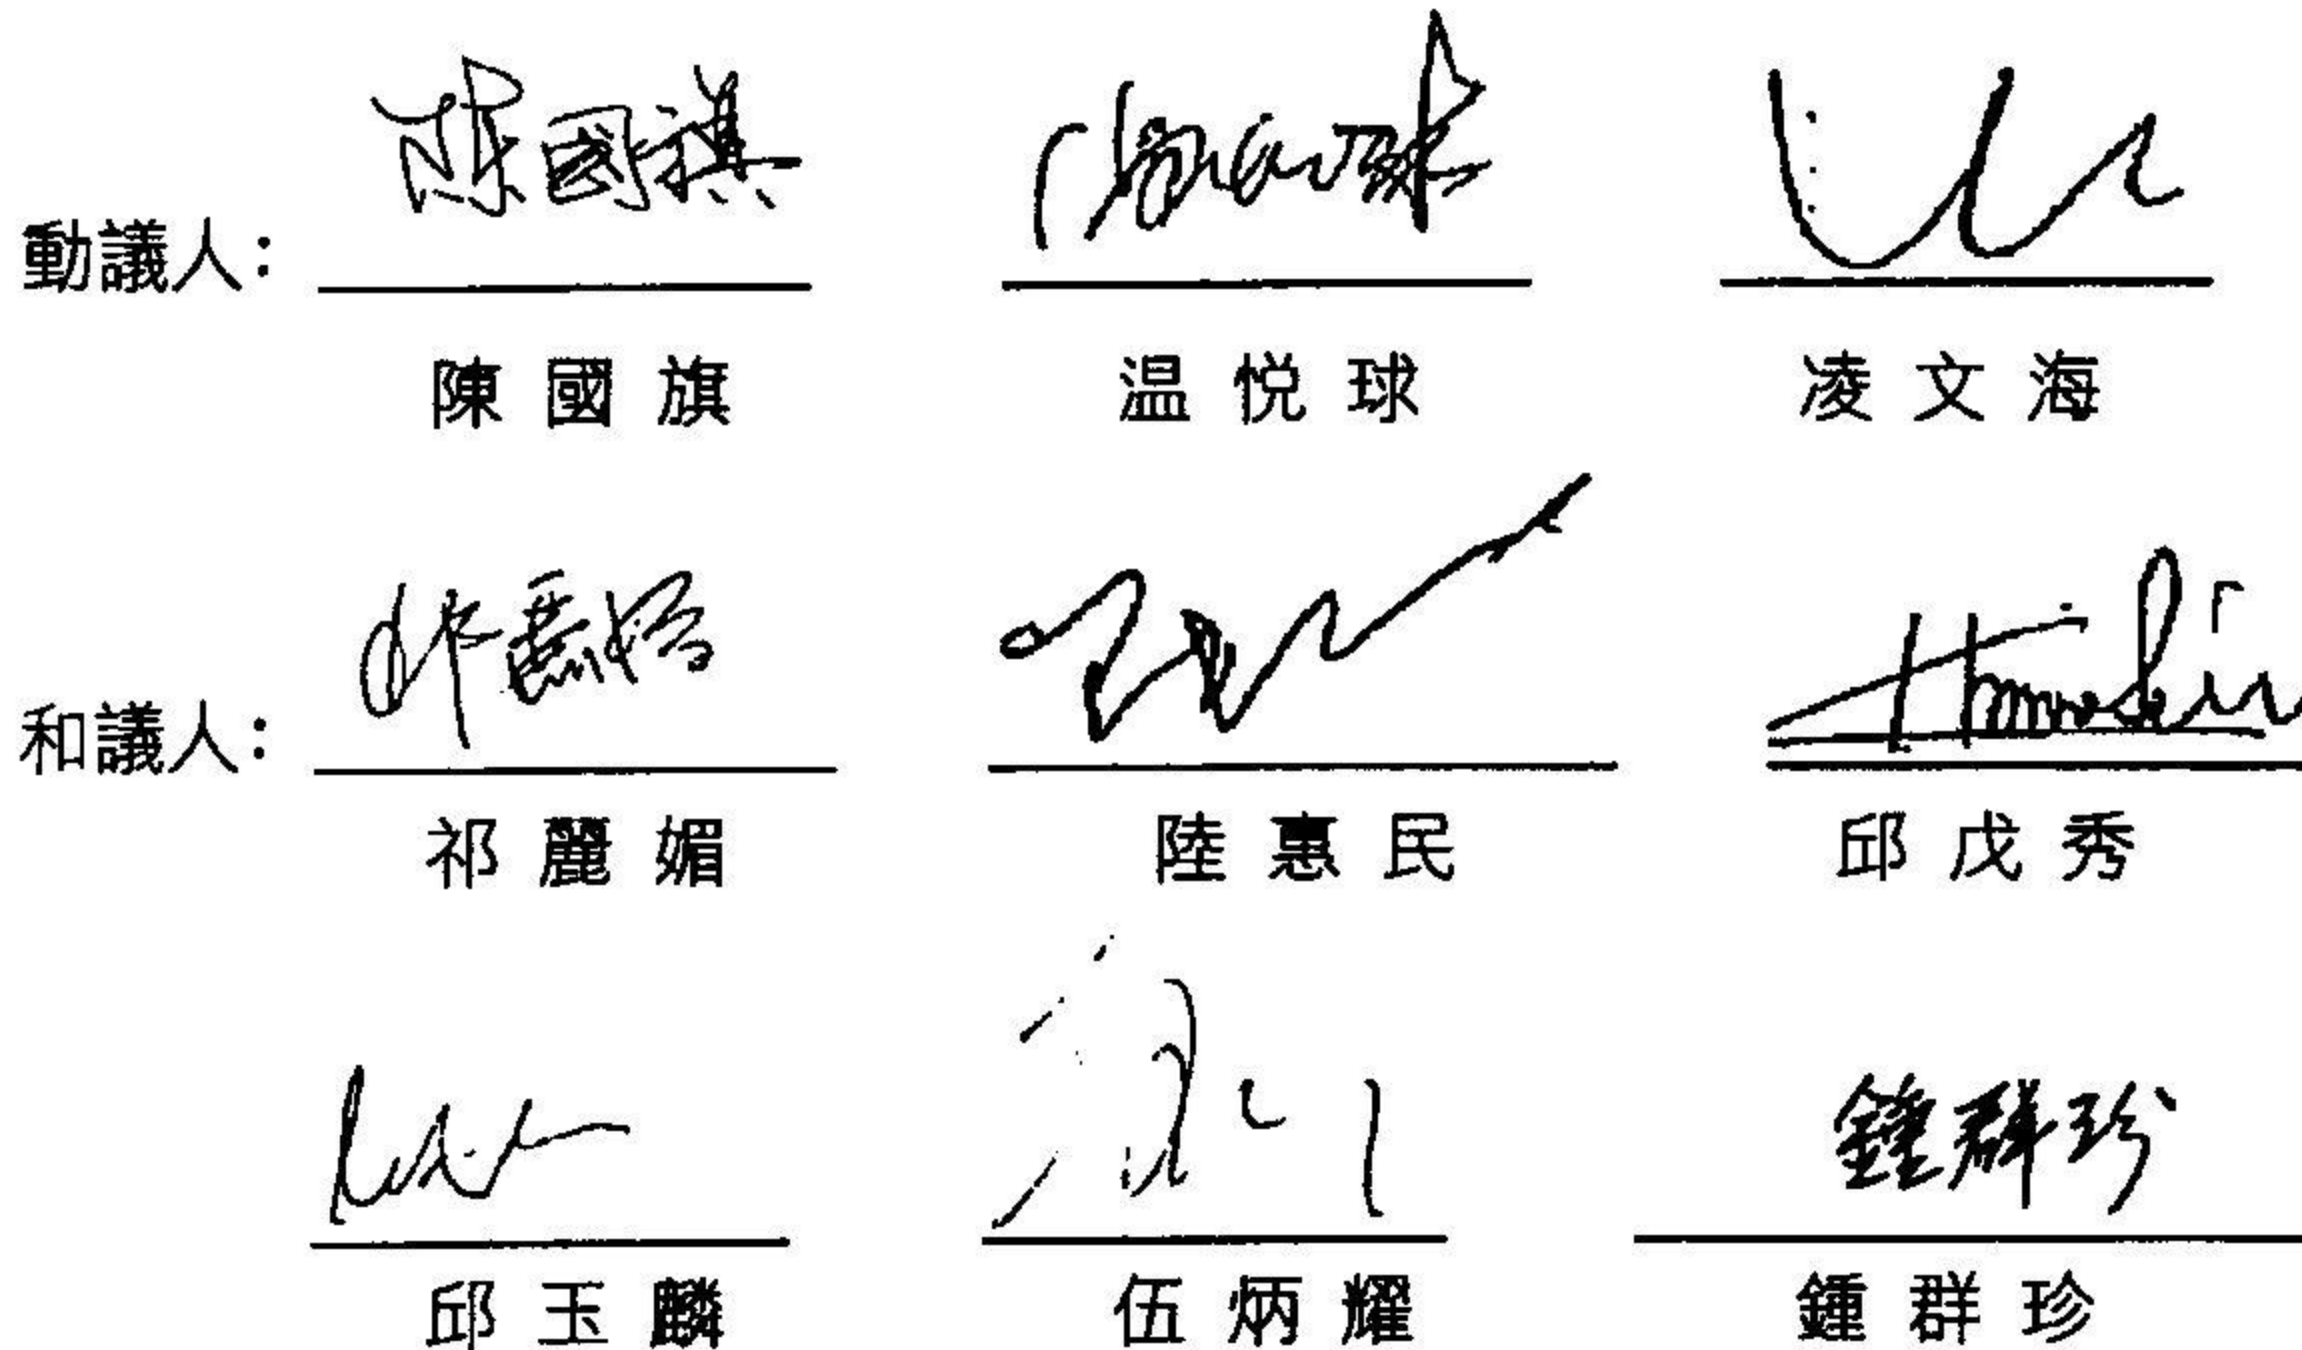 陳國旗
動議人：
陳國旗 温悦球 凌文海
和議人：
祁麗媚 陸惠民 邱戊秀
鍾群珍
邱玉麟 伍炳耀 鍾群珍